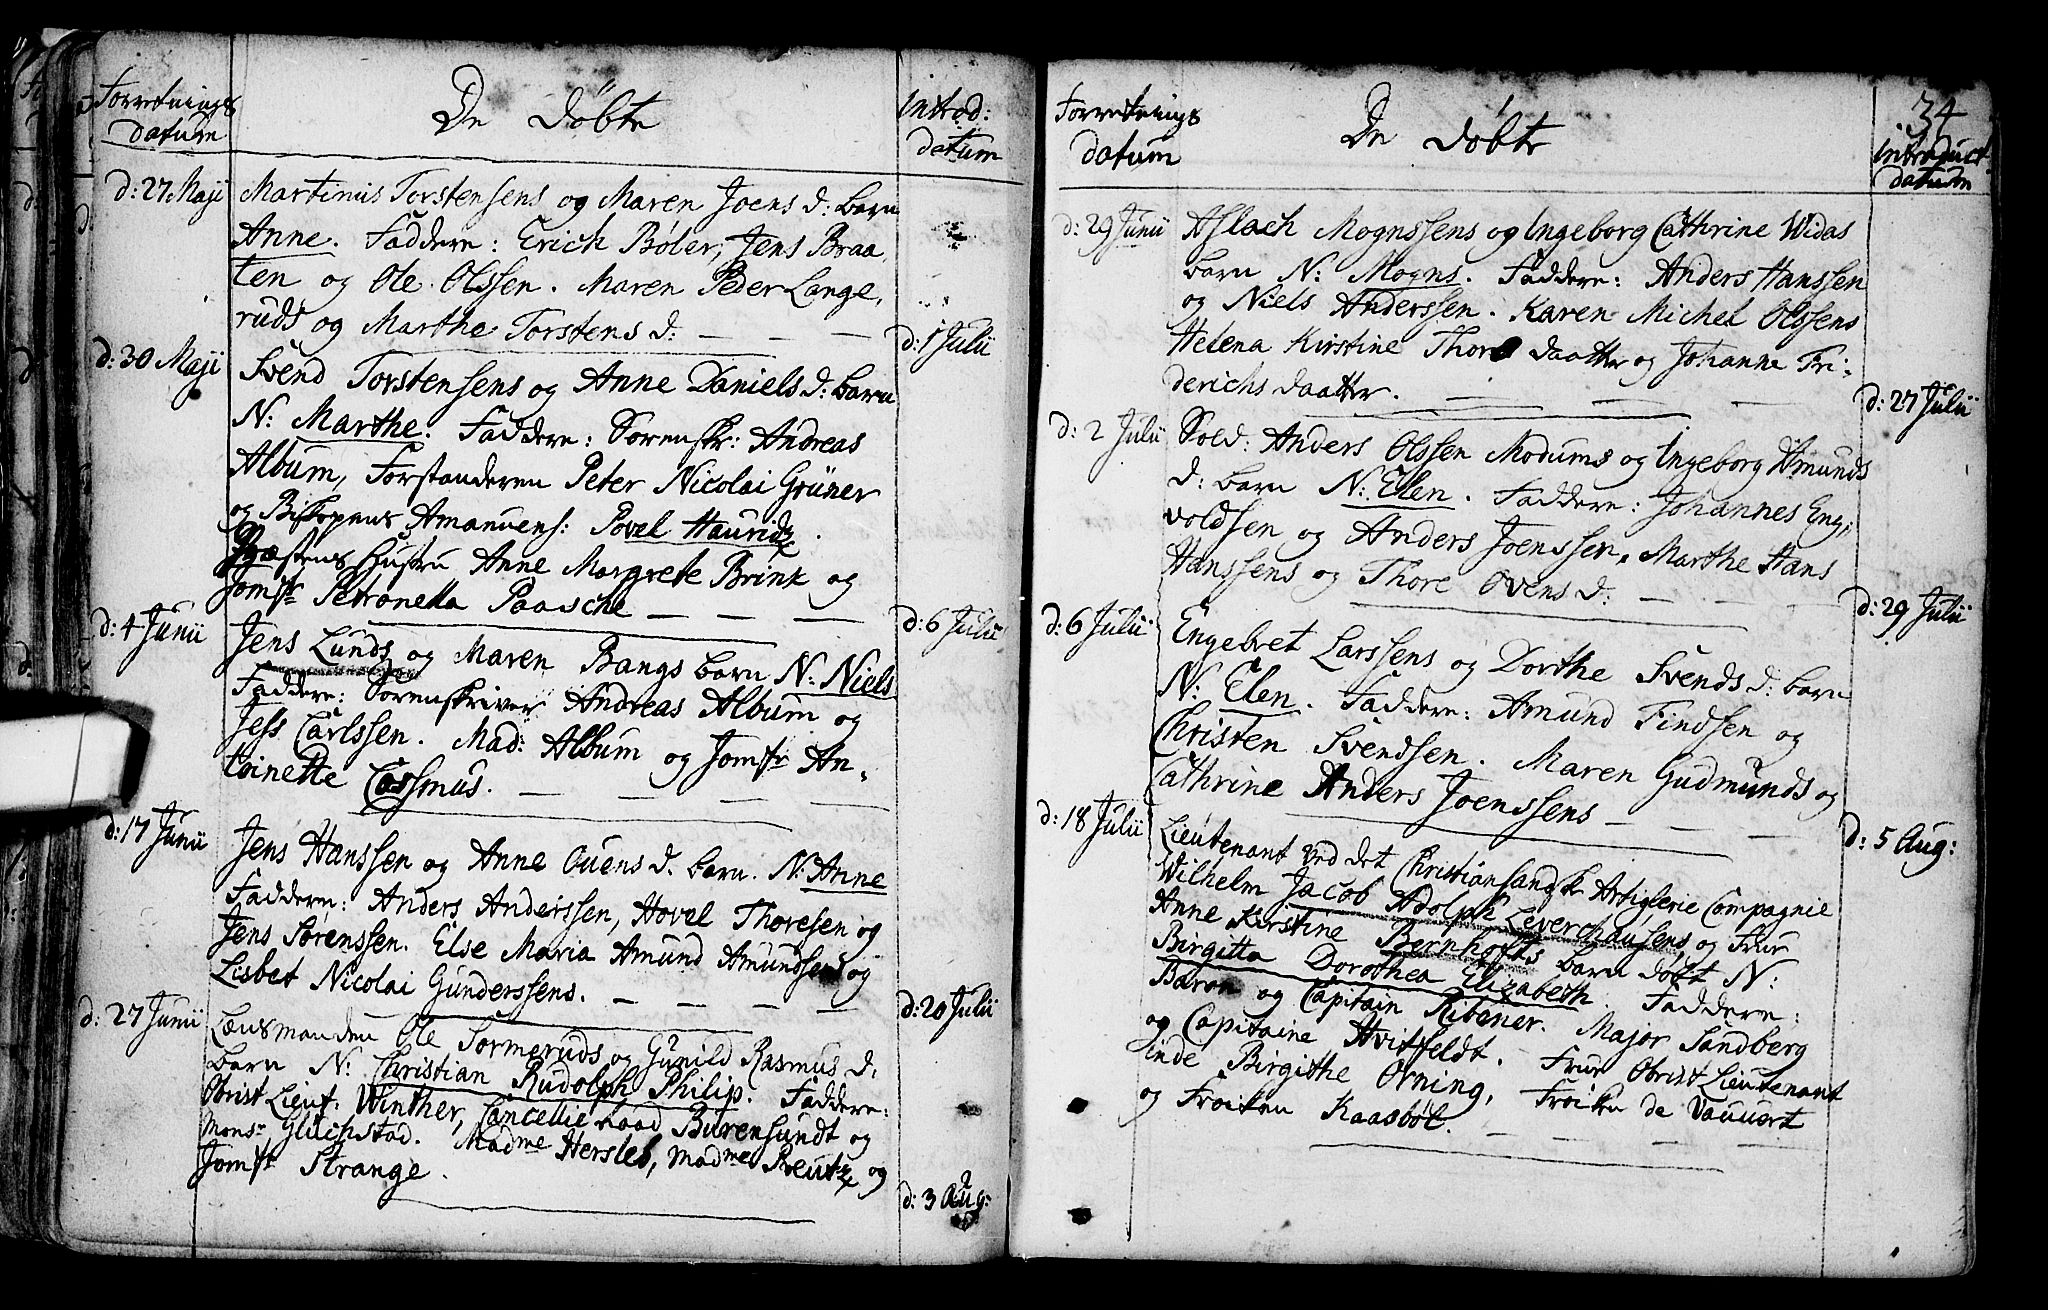 Forretnings
datum
De Döbte
Introd:
datum
d: 27 Maji
Martinus Torstensens og Maren Joens d: barn
Anne. Faddere: Erich Bøler, Jens Braa
ten og Ole Olssen. Maren Peder Lange,
ruds og Marthe Torstens d. — — —
d: 1 Julii
d: 30 Maji
Svend Torstensens og Anne Daniels d: barn
N: Marthe. Faddere: Sorenskr: Andreas
Album, Forstanderen Peter Nicolai Grüner
og Biskopens Amanuens: Povel Hauridz.
Præstens Hustru Anne Margrete Brink og
Jomfr Petronella Paasche — — —
d: 6 Julii
d: 4 Junii
Jens Lunds og Maren Bangs barn N: Niels
Faddere: Sorenskriver Andreas Album og
Jess Carlssen. Mad: Album og Jomfr An-
toinette Cossmus. — — — —
d: 17 Junii
Jens Hanssen og Anne Ouens d. barn. N: Anne
Faddere: Anders Anderssen, Hovel Thoresen og
Jens Sørenssen. Else Maria Amund Amundsens og
Lisbet Nicolai Gunderssens. — — — —
d: 20 Julii
d: 27 Junii
Lensmanden Ole Sormeruds og Gunild Rasmus d.
barn N: Christian Rudolph Philip. Faddere:
Obrist Lieut: Winther, Cancellie Raad Burensundt og
Monsr Gluchstad. Madme Hersleb, Madme Breutz og
Jomfr Strange.
d: 3 Aug:
34
Forretnings
datum
De döbte
Introduct
datum
d: 29 Junii
Aslach Mognssens og Ingeborg Cathrine Widas
barn N: Mogns. Faddere: Anders Hanssen
og Niels Anderssen. Karen Michel Olssens
Helena Kirstine Thore daatter og Johanne Fri-
derichs daatter. — — — —
d: 27 Julii
d: 2 Julii
Sold: Anders Olssen Modums og Ingeborg Amunds
d: barn N: Elen. Faddere: Johannes Eng,
voldsen og Anders Joenssen. Marthe Hans
Hanssens og Thore Ovens d. — — —
d: 29 Julii
d: 6 Julii
Engebret Larssens og Dorthe Svends d: barn
N: Elen. Faddere: Amund Findsen og
Christen Svendsen. Maren Gudmunds og
Cathrine Anders Joenssens — — —
d: 5 Aug:
d: 18 Julii
Lieutenant ved det Christiansandske Artiglerie Compagnie
Wilhelm Jacob Adolph Leverchausens og Frur
Anne Kirstine Bernhofts barn döbt N:
Birgitta Dorothea Elizabeth. Faddere:
Baron og Capitain Ribener. Major Sandberg
og Capitaine Hvitfeldt. Frur Obrist Lieutenant
inde Birgithe Orning, Frøiken de Vauuert
og Frøiken Kaasbøl. — — — —